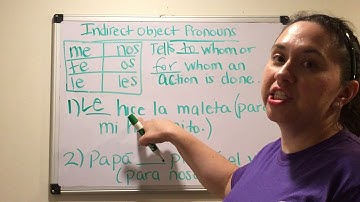 Indirect Object Pronouns
me nos
te os
le les
Tells to whom or
for whom an
action is done.
1) Le hice la maleta (para
mi
2) Papá
(para